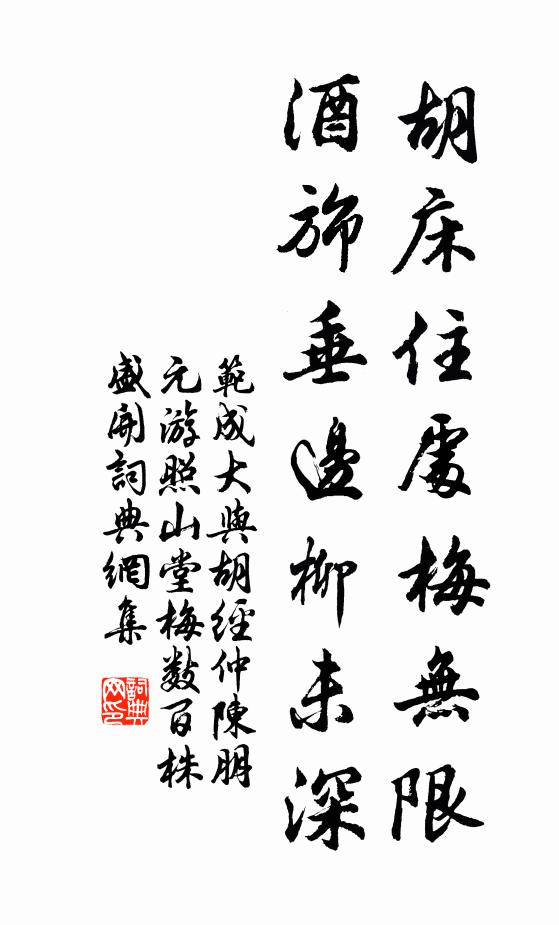 胡床住處梅無限
酒旆垂邊柳未深
範成大與胡經仲陳朋
元游照山堂梅數百株
盛開詞典網集
詞典網印